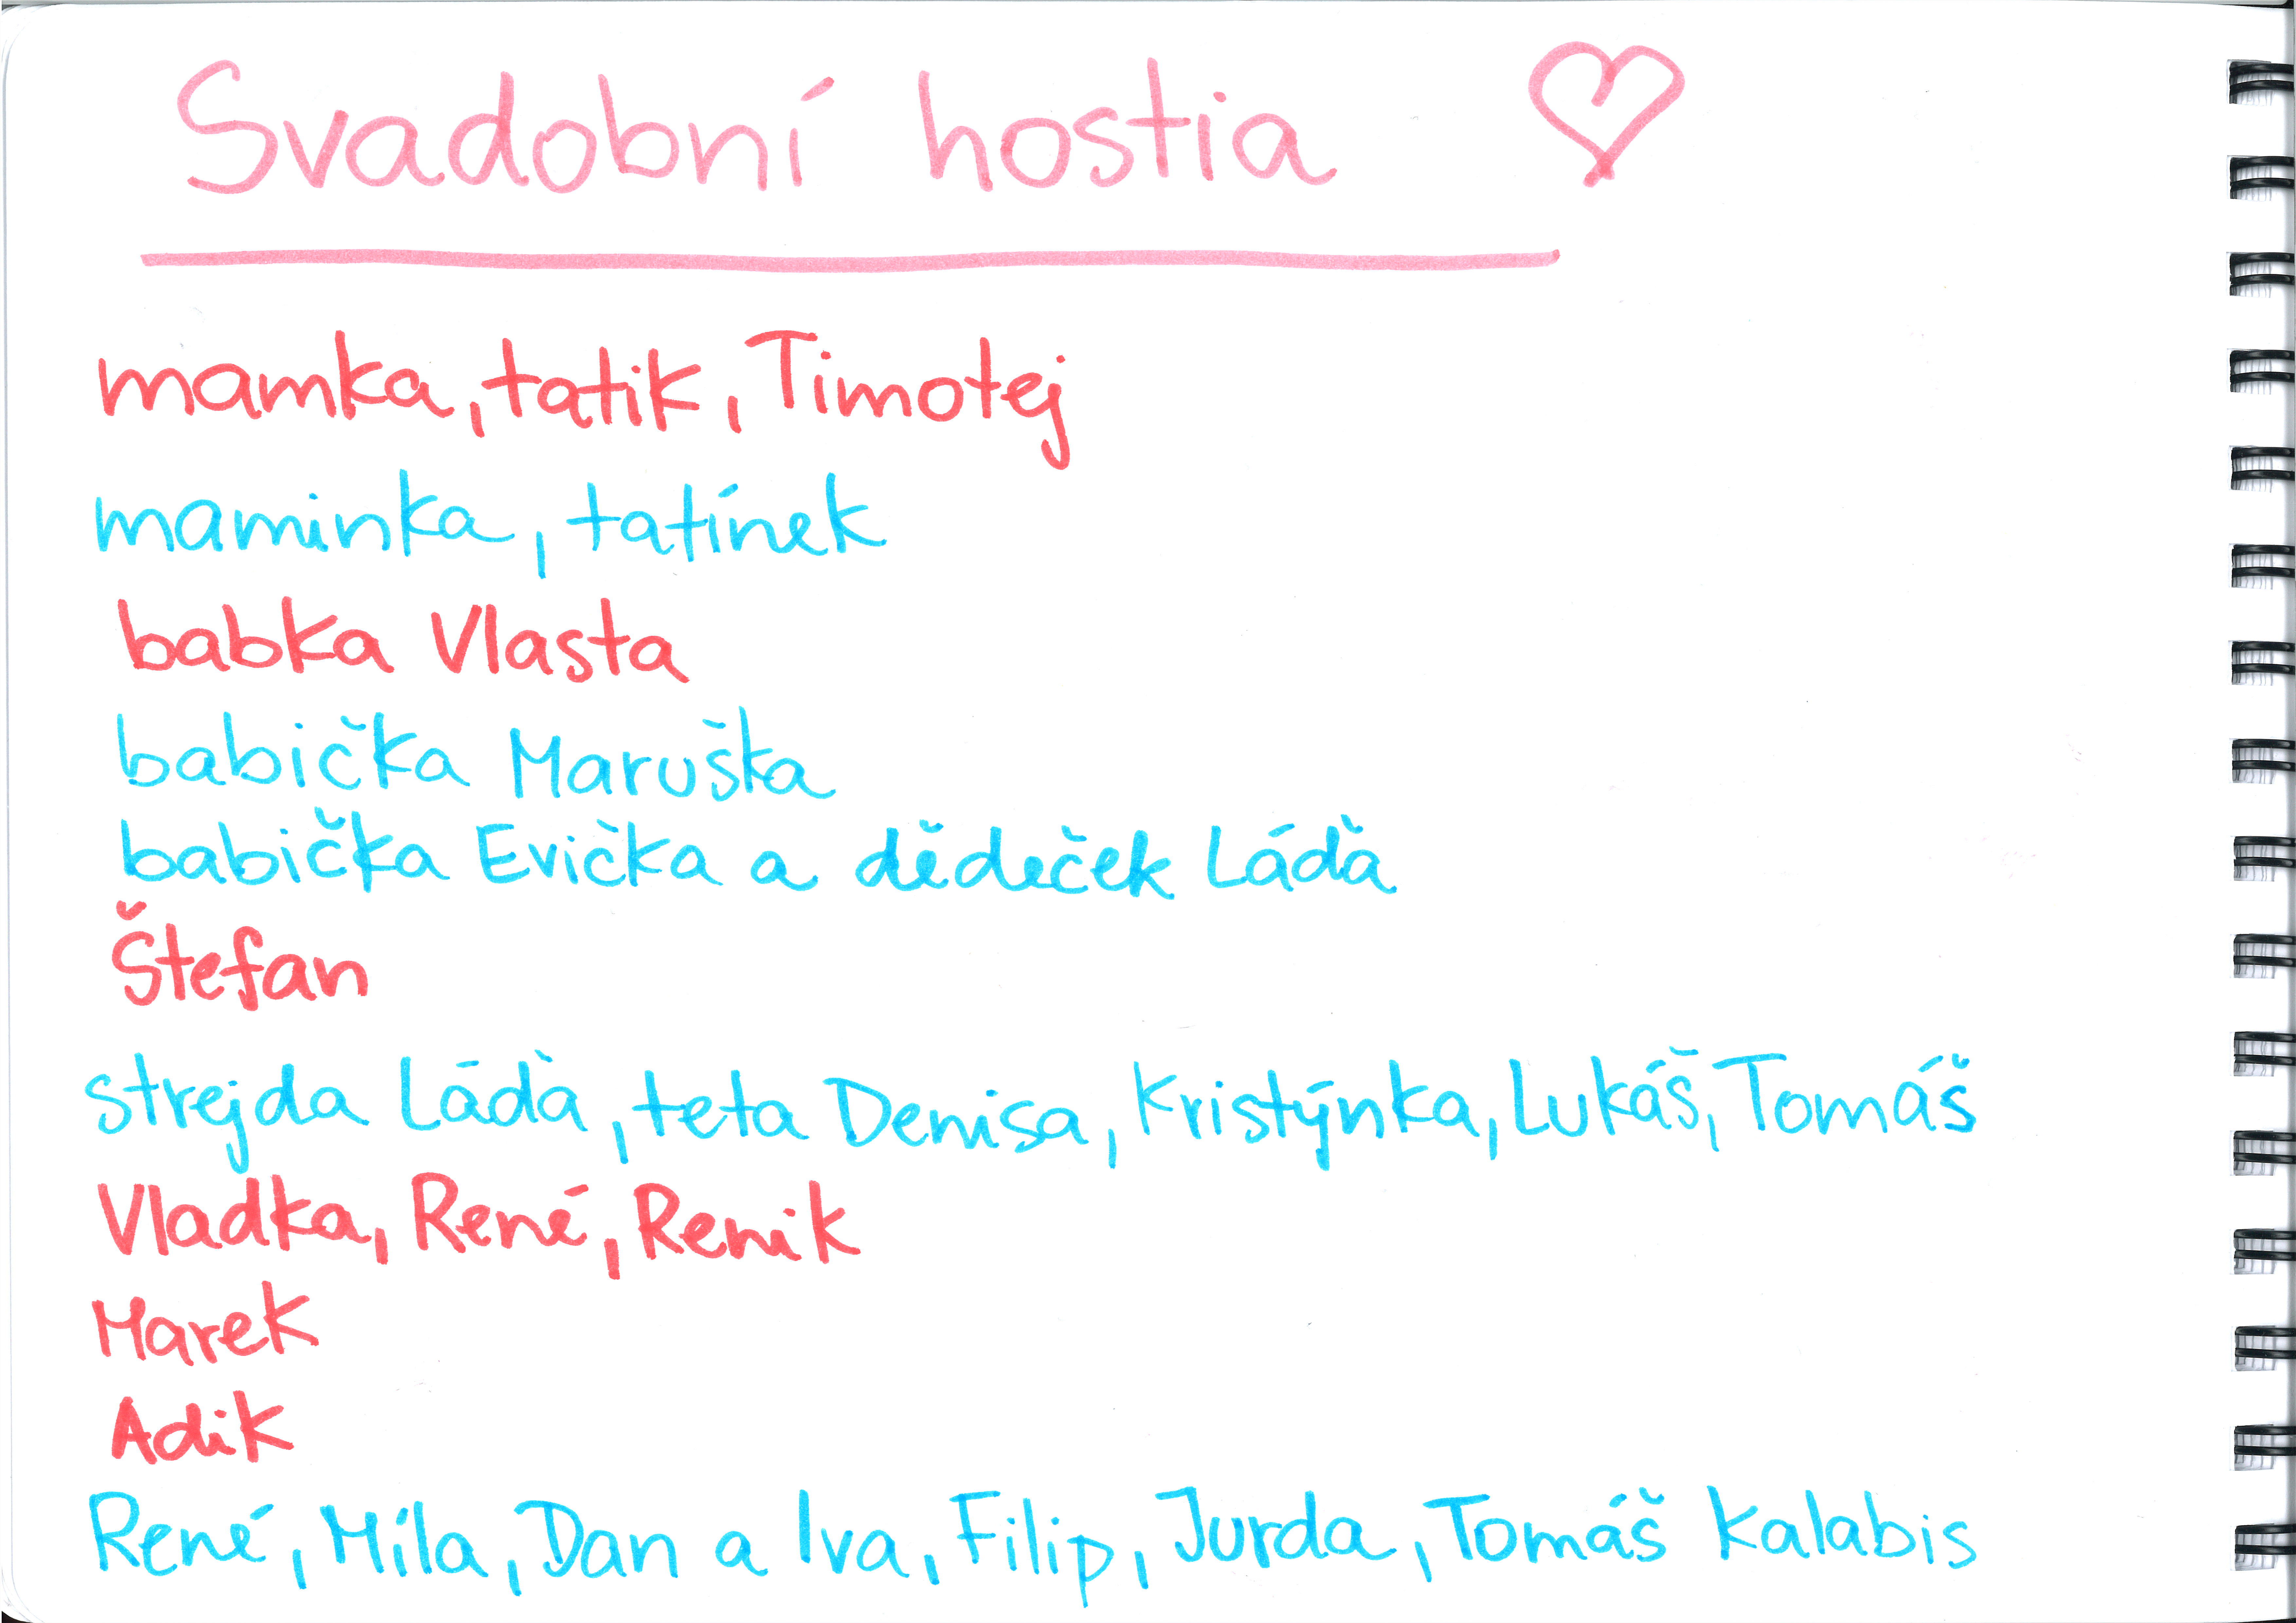 Svadobní hostia
mamka, tatik, Timotej
maminka, tatínek
babka Vlasta
babička Maruška
babička Evička a dědeček Láďa
Štefan
strejda Láďa, teta Denisa, Kristýnka, Lukáš, Tomáš
Vladka, René, Renik
Marek
Adik
René, Míla, Dan a Iva, Filip, Jurda, Tomáš Kalabis